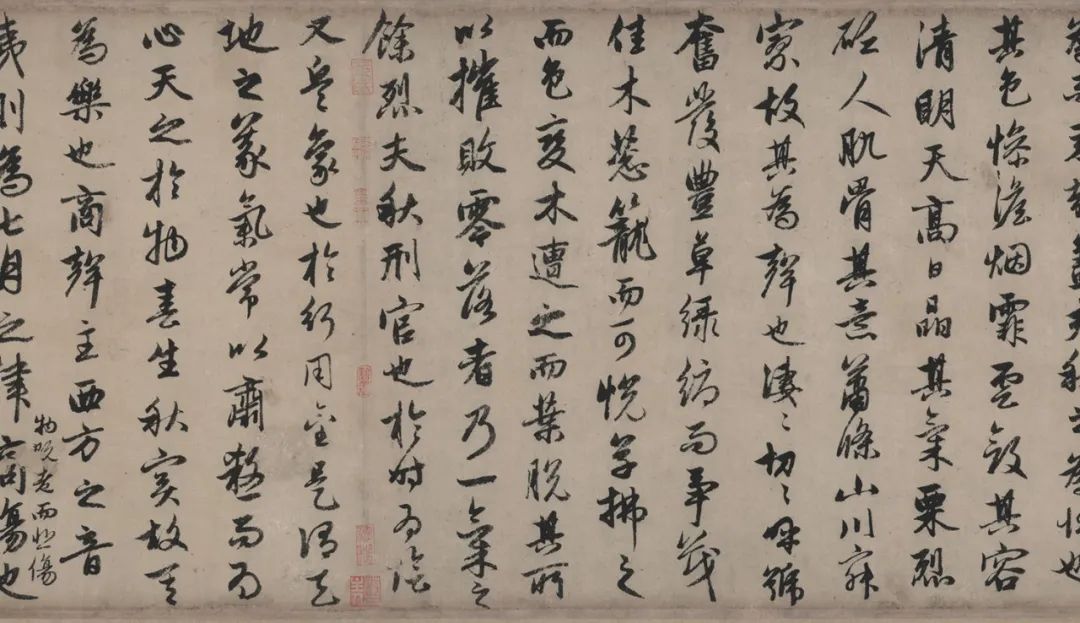 盖夫秋之為狀也
其色慘澹烟霏雲斂其容
清明天高日晶其氣栗烈
砭人肌骨其意蕭條山川寂
寥故其為聲也凄〻切〻呼號
奮發豐草緑縟而爭茂
佳木葱籠而可悦草拂之
而色變木遭之而葉脱其所
以摧敗零落者乃一氣之
餘烈夫秋刑官也於時為陰
又兵象也於行用金是謂天
地之義氣常以肅殺而為
心天之於物春生秋實故其
為樂也商聲主西方之音
夷則為七月之律商傷也
物既老而悲傷